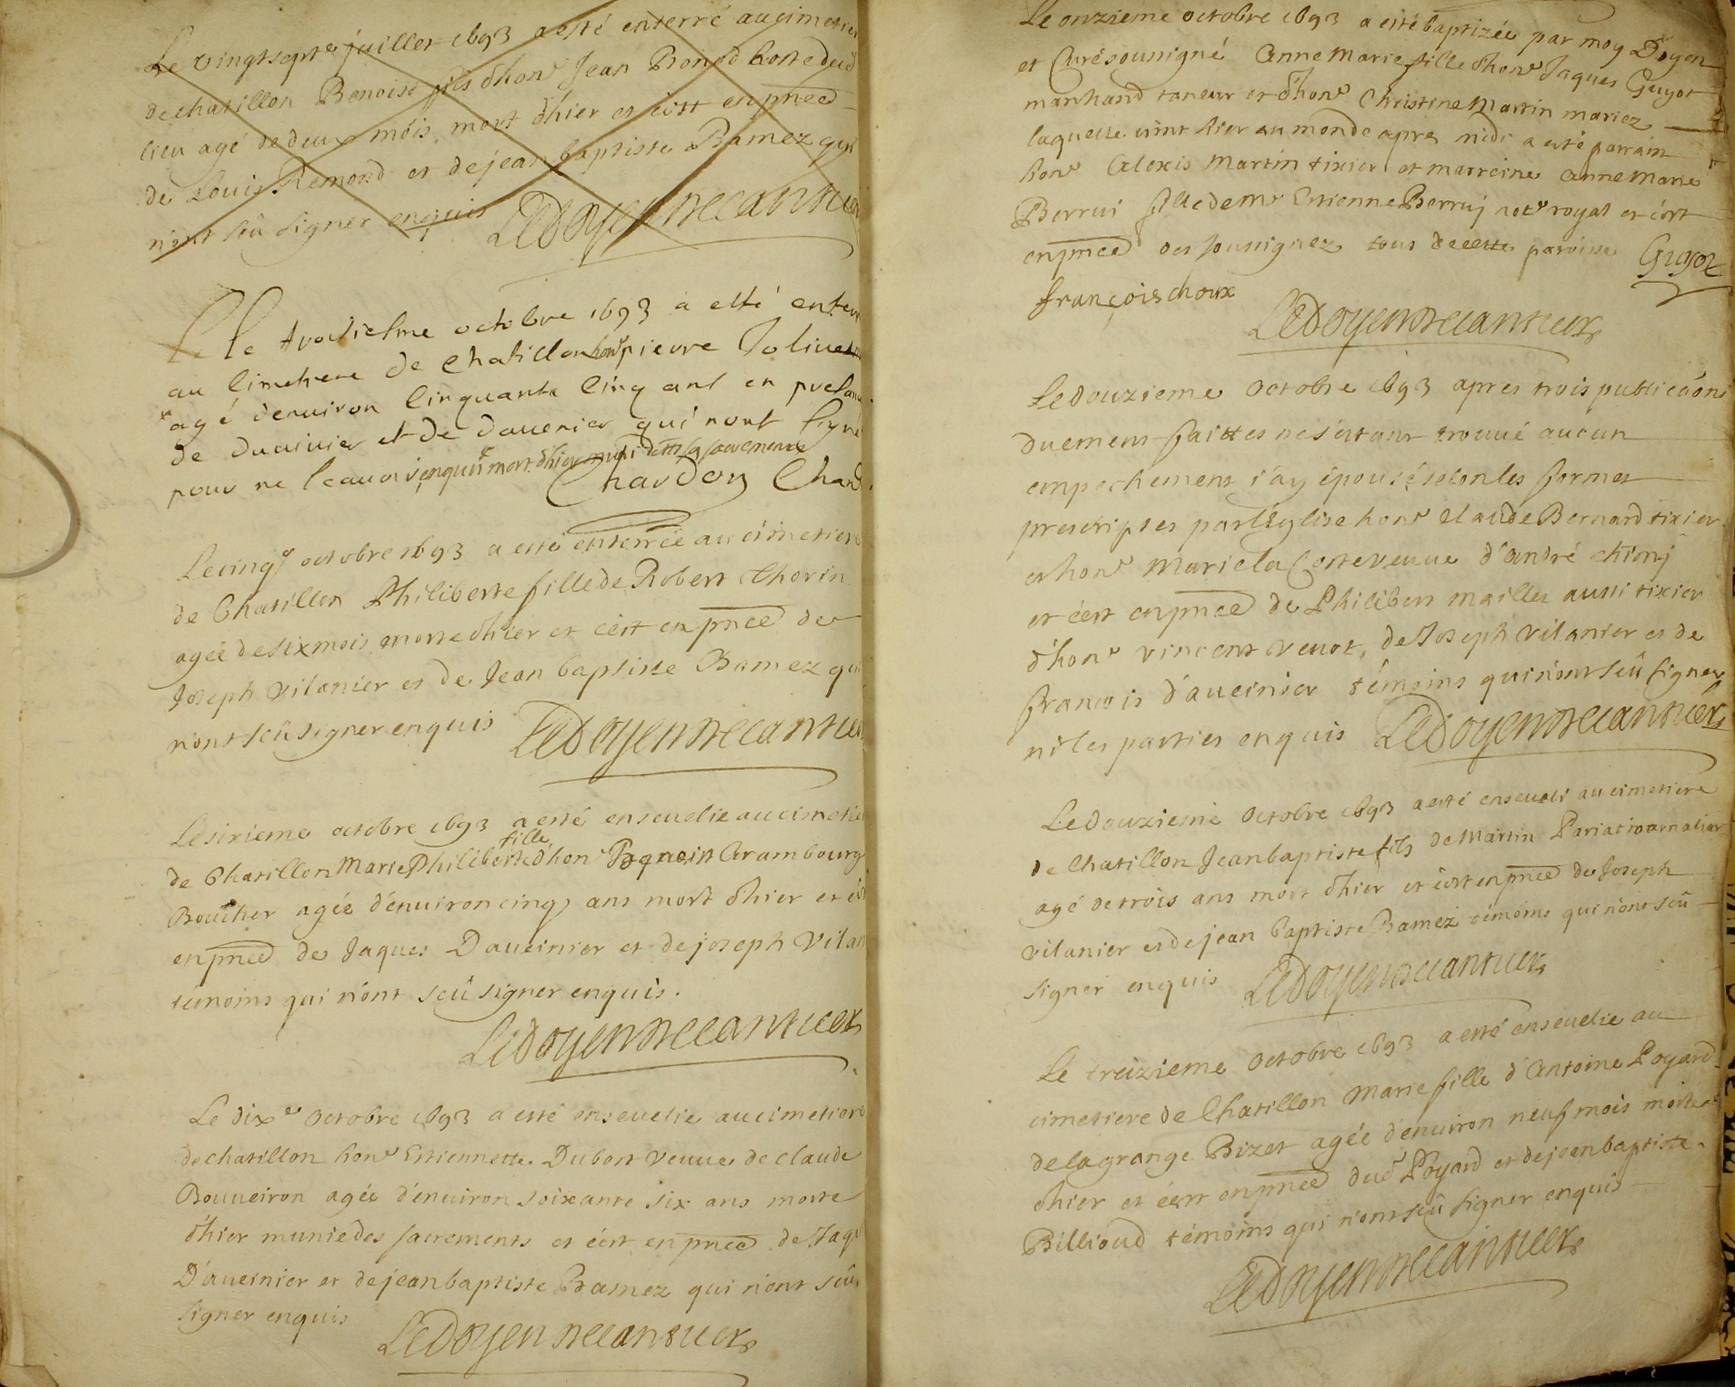 Le vingtsept.e juillet 1693 a esté enterré au cimetier
de chatillon Benoist fils d'hon.e Jean Bonod hoste dud
lieu agé de deux mois, mort d'hier et c'est enpnce
de Louis Remond et de jean baptiste Bamez qui
n'ont sçû signer enquis Ledoyen
Le troisiesme octobre 1693 a esté enter
au Cimetiere de Chatillon hon.e pierre Jolivet
agé denuiron Cinquante Cinq ans en presan
de et de Dauenier qui nont signé
pour ne scauoir enquis mort d'hier muni de sacremens
Chardon Chard
Le cinq.e octobre 1693 a esté enterrée au cimetiere
de Chatillon Philiberte fille de Robert Thorin
agée de six mois, morte d'hier et c'est en pnce de
Joseph Vilanier et de Jean baptiste Bamez qui
n'ont sçû signer enquis Ledoyen
Le sixieme octobre 1693 a esté enseuelie au cimetie
de Chatillon Marie Philiberte fille d'hon.e Arambourg
Boucher agée d'enuiron cinq ans mort d'hier et c'est
enpnce de Jaques Daueinier et de joseph Vilan
témoins qui n'ont sçû signer enquis.
Ledoyen
Le dix.e octobre 1693 a esté enseuelie au cimetiere
de chatillon hon.e Estiennette Dubost veuue de claude
Bouueiron agée d'enuiron soixante six ans morte
d'hier munie des sacrements et c'est enpnce de Jaq
D'aueinier et de jean baptiste Bamez qui n'ont sçû
signer enquis Ledoyen
Le onzieme octobre 1693 a esté baptizée par moy Doyen
et Curé soussigné Anne Marie fille d'hon.e Jaques Guyot
marchand taneur et d'hon.e Christine Martin mariez
laquelle vint hier au monde apres midi a esté parrain
hon.e Alexis Martin tixier et marreine Anne Marie
Berrui fille de m.e Estienne Berruj not.e royal et c'est
enpnce des soussignez tous de cette paroisse Guyot
françois choux
Ledoyen
Le douzieme octobre 1693 apres trois publicaons
duement faittes ne s'estant trouué aucun
empechement j'ay épousé selon les formes
prescriptes par l'Eglise hon.e Claude Bernard tixier
et hon.e Marie la Coste veuue d'andré chionj
et c'est enpnce de Philibert mailler aussi tixier
d'hon.e vincent veuot, de Joseph vilanier et de
francois d'aueinier témoins qui n'ont sçû signer
ni les parties enquis Ledoyen
Le douzieme octobre 1693 a esté enseueli au cimetiere
de Chatillon Jean baptiste fils de Martin Pariat journalier
agé de trois ans mort d'hier et c'est enpnce de Joseph
vilanier et de jean baptiste Bamez témoins qui n'ont sçû
signer enquis Ledoyen
Le treizieme octobre 1693 a esté enseuelie au
cimetiere de Chatillon Marie fille d'Antoine Poyard
de la grange Bizet agée d'enuiron neuf mois morte
d'hier et c'est enpnce dud Poyard et de jean baptiste
Billioud témoins qui n'ont sçû signer enquis
Ledoyen